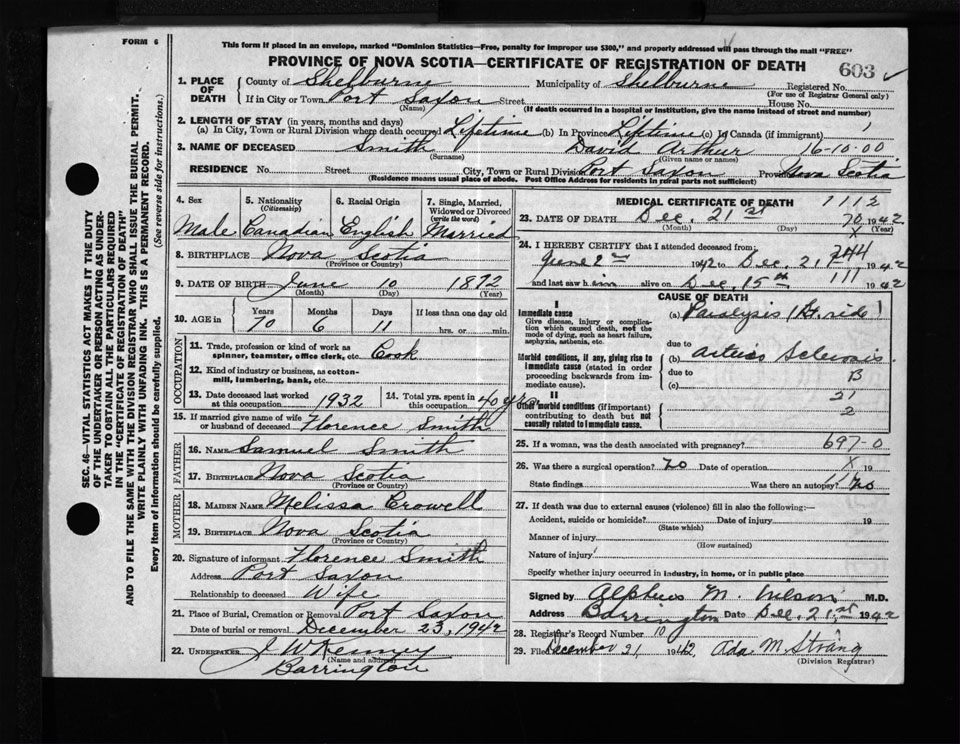 FORM 6
This form if placed in an envelope, marked "Dominion Statistics—Free, penalty for improper use $300," and properly addressed will pass through the mail "FREE"
PROVINCE OF NOVA SCOTIA—CERTIFICATE OF REGISTRATION OF DEATH
603
1. PLACE OF DEATH County of Shelburne Municipality of Shelburne Registered No.
(For use of Registrar General only)
If in City or Town Port Saxon Street House No.
(Name) (If death occurred in a hospital or institution, give the name instead of street and number)
2. LENGTH OF STAY (in years, months and days)
(a) In City, Town or Rural Division where death occurred Lifetime (b) In Province Lifetime (c) In Canada (if immigrant)
3. NAME OF DECEASED Smith David Arthur 16-10-00
(Surname) (Given name or names)
RESIDENCE No. Street City, Town or Rural Division Port Saxon Province Nova Scotia
(Residence means usual place of abode. Post Office Address for residents in rural parts not sufficient)
4. Sex 5. Nationality (Citizenship) 6. Racial Origin 7. Single, Married, Widowed or Divorced (write the word)
Male Canadian English Married
8. BIRTHPLACE Nova Scotia
(Province or Country)
9. DATE OF BIRTH June 10 1872
(Month) (Day) (Year)
10. AGE in Years Months Days If less than one day old
70 6 11 hrs. or min.
OCCUPATION
11. Trade, profession or kind of work as spinner, teamster, office clerk, etc. Cook
12. Kind of industry or business, as cotton-mill, lumbering, bank, etc.
13. Date deceased last worked at this occupation 1932 14. Total yrs. spent in this occupation 40 yrs
15. If married give name of wife or husband of deceased Florence Smith
FATHER
16. NAME Samuel Smith
17. BIRTHPLACE Nova Scotia
(Province or Country)
MOTHER
18. MAIDEN NAME Melissa Crowell
19. BIRTHPLACE Nova Scotia
(Province or Country)
20. Signature of informant Florence Smith
Address Port Saxon
Relationship to deceased Wife
21. Place of Burial, Cremation or Removal Port Saxon
Date of burial or removal December 23, 1942
22. UNDERTAKER J W Kenney
(Name and address)
Barrington
MEDICAL CERTIFICATE OF DEATH 1112
23. DATE OF DEATH Dec. 21st 70 1942
(Month) (Day) X (Year)
24. I HEREBY CERTIFY that I attended deceased from: 744
June 2nd 1942 to Dec. 21 1942
and last saw him alive on Dec. 15th 111 1942
CAUSE OF DEATH
I
Immediate cause
Give disease, injury or complication which caused death, not the mode of dying, such as heart failure, asphyxia, asthenia, etc.
(a) Paralysis (Rt. side)
due to
Morbid conditions, if any, giving rise to immediate cause (stated in order proceeding backwards from immediate cause).
(b) Sclerosis
due to B
(c)
II
Other morbid conditions (if important) contributing to death but not causally related to immediate cause.
21
2
25. If a woman, was the death associated with pregnancy? 697-0
26. Was there a surgical operation? no Date of operation X 19
State findings Was there an autopsy? no
27. If death was due to external causes (violence) fill in also the following:—
Accident, suicide or homicide? Date of injury 19
(State which)
Manner of injury
(How sustained)
Nature of injury
Specify whether injury occurred in industry, in home, or in public place
Signed by M. Wilson M.D.
Address Barrington Date Dec. 21st 1942
28. Registrar's Record Number 10
29. Filed December 21, 1942, Ada M. Strang
(Division Registrar)
SEC. 46—VITAL STATISTICS ACT MAKES IT THE DUTY
OF THE UNDERTAKER OR PERSON ACTING AS UNDER-
TAKER TO OBTAIN ALL THE PARTICULARS REQUIRED
IN THE "CERTIFICATE OF REGISTRATION OF DEATH"
AND TO FILE THE SAME WITH THE DIVISION REGISTRAR WHO SHALL ISSUE THE BURIAL PERMIT.
WRITE PLAINLY WITH UNFADING INK. THIS IS A PERMANENT RECORD.
Every item of information should be carefully supplied. (See reverse side for instructions.)